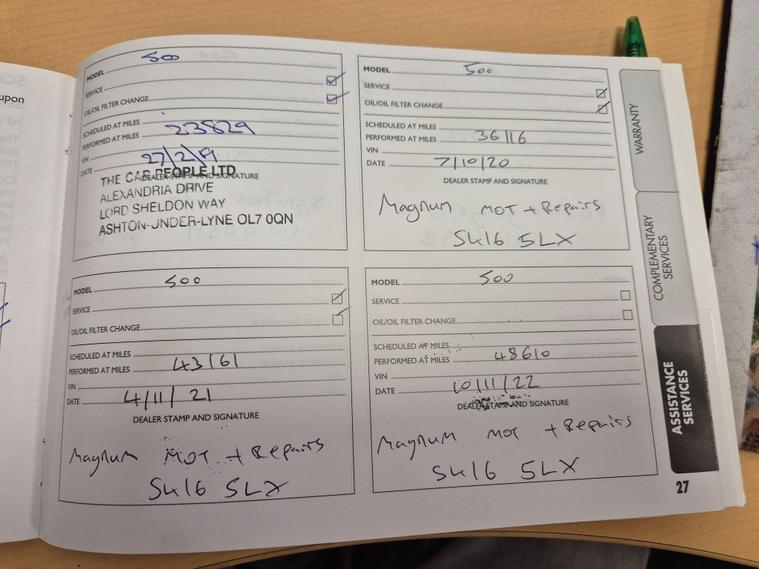 upon
MODEL 500
SERVICE
OIL/OIL FILTER CHANGE
SCHEDULED AT MILES
PERFORMED AT MILES 23829
VIN
DATE 27/2/19
DEALER STAMP AND SIGNATURE
THE CAR PEOPLE LTD
ALEXANDRIA DRIVE
LORD SHELDON WAY
ASHTON-UNDER-LYNE OL7 0QN
MODEL 500
SERVICE
OIL/OIL FILTER CHANGE
SCHEDULED AT MILES
PERFORMED AT MILES 36116
VIN
DATE 7/10/20
DEALER STAMP AND SIGNATURE
Magnum MOT + Repairs
SK16 5LX
MODEL 500
SERVICE
OIL/OIL FILTER CHANGE
SCHEDULED AT MILES
PERFORMED AT MILES 43161
VIN
DATE 4/11/21
DEALER STAMP AND SIGNATURE
Magnum MOT + Repairs
SK16 5LX
MODEL 500
SERVICE
OIL/OIL FILTER CHANGE
SCHEDULED AT MILES
PERFORMED AT MILES 48610
VIN
DATE 10/11/22
DEALER STAMP AND SIGNATURE
Magnum MOT + Repairs
SK16 5LX
WARRANTY
COMPLEMENTARY
SERVICES
ASSISTANCE
SERVICES
27